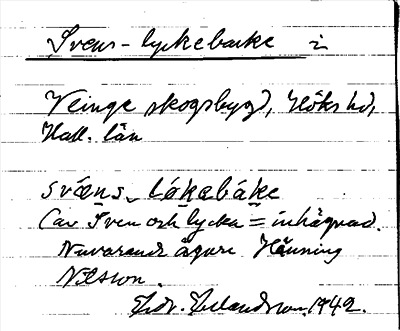 Svens-lyckebacke i
Veinge skogsbygd, Höks hd,
Hall. län
svæns-lákabáke
(av Sven och lycka = inhägnad.
Nuvarande ägare Hänning
Nilsson.
Erlandsson. 1942.